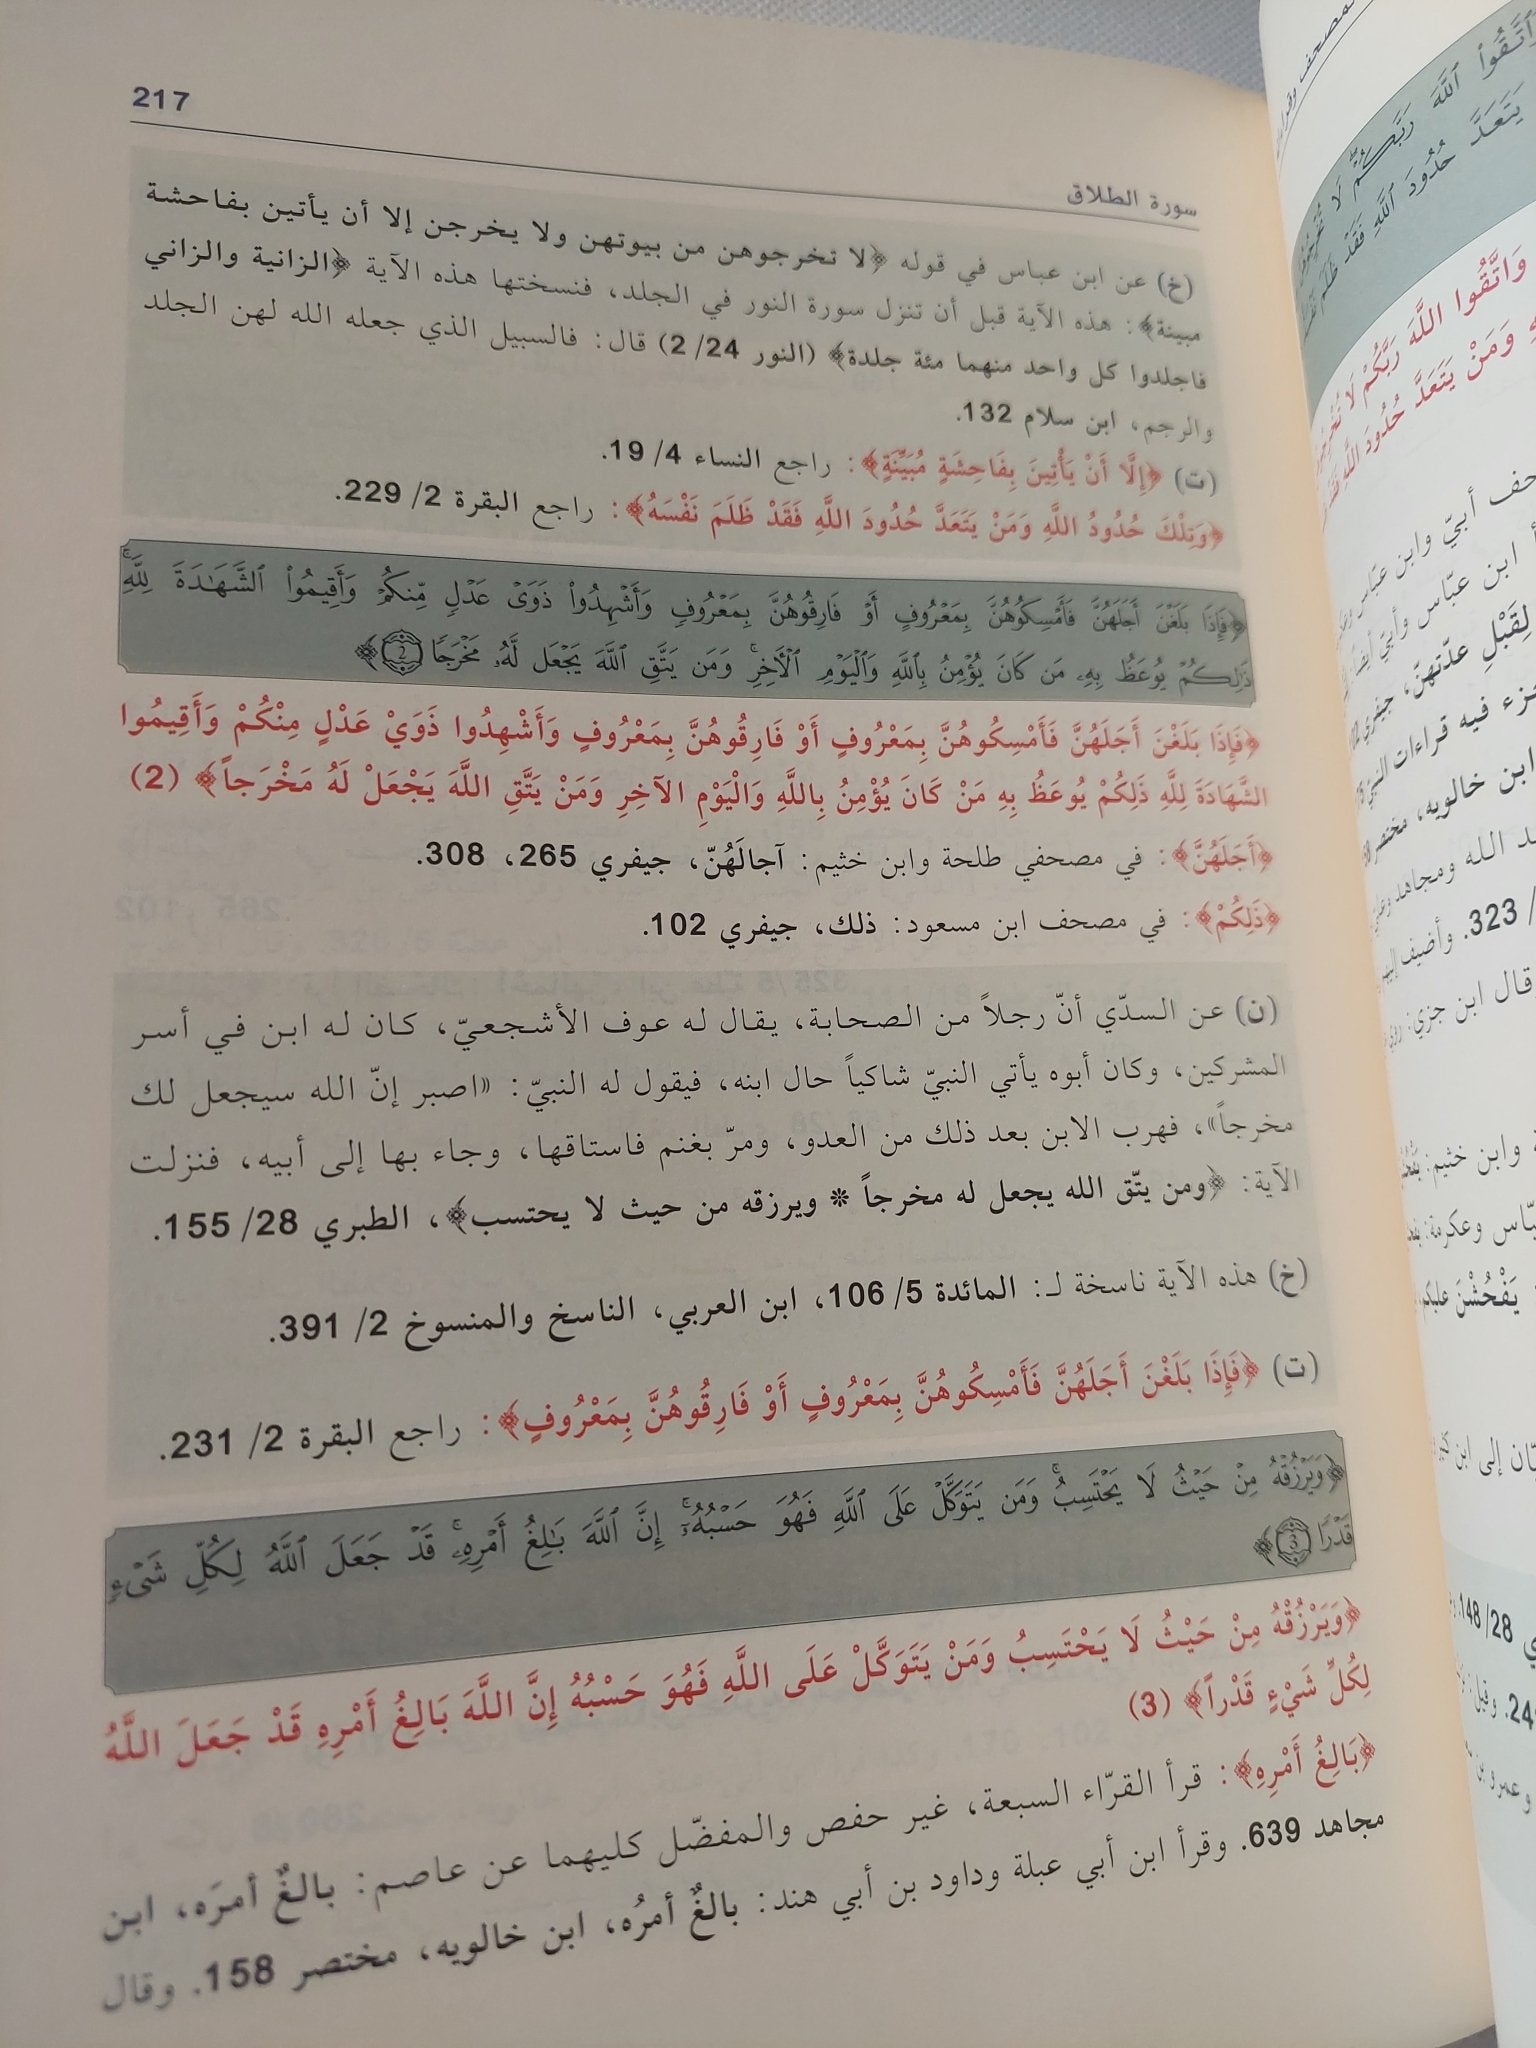 217
سورة الطلاق
(خ) عن ابن عباس في قوله ﴿لا تخرجوهن من بيوتهن ولا يخرجن إلا أن يأتين بفاحشة
مبينة﴾: هذه الآية قبل أن تنزل سورة النور في الجلد، فنسختها هذه الآية ﴿الزانية والزاني
فاجلدوا كل واحد منهما مئة جلدة﴾ (النور 24/ 2) قال: فالسبيل الذي جعله الله لهن الجلد
والرجم، ابن سلام 132.
(ت) ﴿إِلَّا أَنْ يَأْتِينَ بِفَاحِشَةٍ مُبَيِّنَةٍ﴾: راجع النساء 4/ 19.
﴿وَتِلْكَ حُدُودُ اللَّهِ وَمَنْ يَتَعَدَّ حُدُودَ اللَّهِ فَقَدْ ظَلَمَ نَفْسَهُ﴾: راجع البقرة 2/ 229.
﴿فَإِذَا بَلَغْنَ أَجَلَهُنَّ فَأَمْسِكُوهُنَّ بِمَعْرُوفٍ أَوْ فَارِقُوهُنَّ بِمَعْرُوفٍ وَأَشْهِدُوا۟ ذَوَىْ عَدْلٍ مِّنكُمْ وَأَقِيمُوا۟ ٱلشَّهَٰدَةَ لِلَّهِ ۚ
ذَٰلِكُمْ يُوعَظُ بِهِۦ مَن كَانَ يُؤْمِنُ بِٱللَّهِ وَٱلْيَوْمِ ٱلْـَٔاخِرِ ۚ وَمَن يَتَّقِ ٱللَّهَ يَجْعَل لَّهُۥ مَخْرَجًا 2﴾
﴿فَإِذَا بَلَغْنَ أَجَلَهُنَّ فَأَمْسِكُوهُنَّ بِمَعْرُوفٍ أَوْ فَارِقُوهُنَّ بِمَعْرُوفٍ وَأَشْهِدُوا ذَوَيْ عَدْلٍ مِنْكُمْ وَأَقِيمُوا
الشَّهَادَةَ لِلَّهِ ذَلِكُمْ يُوعَظُ بِهِ مَنْ كَانَ يُؤْمِنُ بِاللَّهِ وَالْيَوْمِ الآخِرِ وَمَنْ يَتَّقِ اللَّهَ يَجْعَلْ لَهُ مَخْرَجاً﴾ (2)
﴿أَجَلَهُنَّ﴾: في مصحفي طلحة وابن خثيم: آجالَهُنّ، جيفري 265، 308.
﴿ذَلِكُمْ﴾: في مصحف ابن مسعود: ذلك، جيفري 102.
(ن) عن السدّي أنّ رجلاً من الصحابة، يقال له عوف الأشجعيّ، كان له ابن في أسر
المشركين، وكان أبوه يأتي النبيّ شاكياً حال ابنه، فيقول له النبيّ: «اصبر إنّ الله سيجعل لك
مخرجاً»، فهرب الابن بعد ذلك من العدو، ومرّ بغنم فاستاقها، وجاء بها إلى أبيه، فنزلت
الآية: ﴿ومن يتّق الله يجعل له مخرجاً * ويرزقه من حيث لا يحتسب﴾، الطبري 28/ 155.
(خ) هذه الآية ناسخة لـ: المائدة 5/ 106، ابن العربي، الناسخ والمنسوخ 2/ 391.
(ت) ﴿فَإِذَا بَلَغْنَ أَجَلَهُنَّ فَأَمْسِكُوهُنَّ بِمَعْرُوفٍ أَوْ فَارِقُوهُنَّ بِمَعْرُوفٍ﴾: راجع البقرة 2/ 231.
﴿وَيَرْزُقْهُ مِنْ حَيْثُ لَا يَحْتَسِبُ ۚ وَمَن يَتَوَكَّلْ عَلَى ٱللَّهِ فَهُوَ حَسْبُهُۥٓ ۚ إِنَّ ٱللَّهَ بَٰلِغُ أَمْرِهِۦ ۚ قَدْ جَعَلَ ٱللَّهُ لِكُلِّ شَىْءٍ
قَدْرًا 3﴾
﴿وَيَرْزُقْهُ مِنْ حَيْثُ لَا يَحْتَسِبُ وَمَنْ يَتَوَكَّلْ عَلَى اللَّهِ فَهُوَ حَسْبُهُ إِنَّ اللَّهَ بَالِغُ أَمْرِهِ قَدْ جَعَلَ اللَّهُ
لِكُلِّ شَيْءٍ قَدْراً﴾ (3)
﴿بَالِغُ أَمْرِهِ﴾: قرأ القرّاء السبعة، غير حفص والمفضّل كليهما عن عاصم: بالغٌ أمرَه، ابن
مجاهد 639. وقرأ ابن أبي عبلة وداود بن أبي هند: بالغٌ أمرُه، ابن خالويه، مختصر 158. وقال